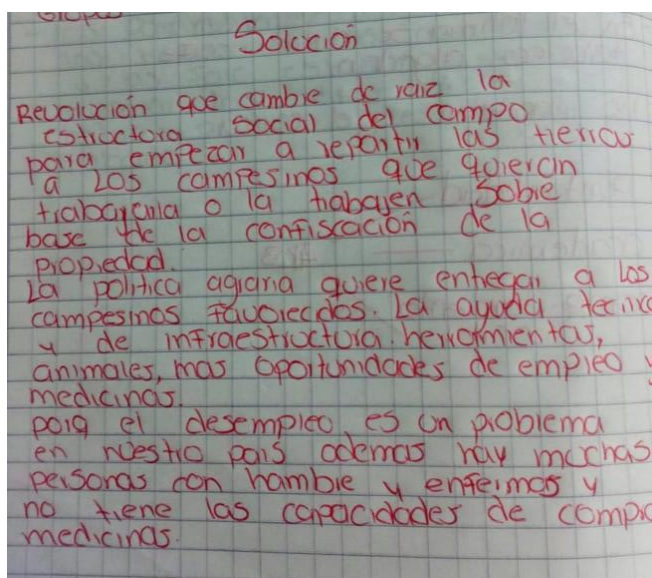 Solución
Revolución que cambie de raiz la
estructura social del campo
para empezar a repartir las tierras
a LOS campesinos que quieran
trabajarla o la trabajen sobre
base de la confiscación de la
propiedad.
La politica agraria quiere entregar a los
campesinos favorecidos. La ayuda tecnica
y de infraestructura herramientas,
animales, mas oportunidades de empleo y
medicinas.
porq el desempleo es un problema
en nuestro pais ademas hay muchas
personas con hambre y enfermos y
no tiene las capacidades de compra
medicinas.